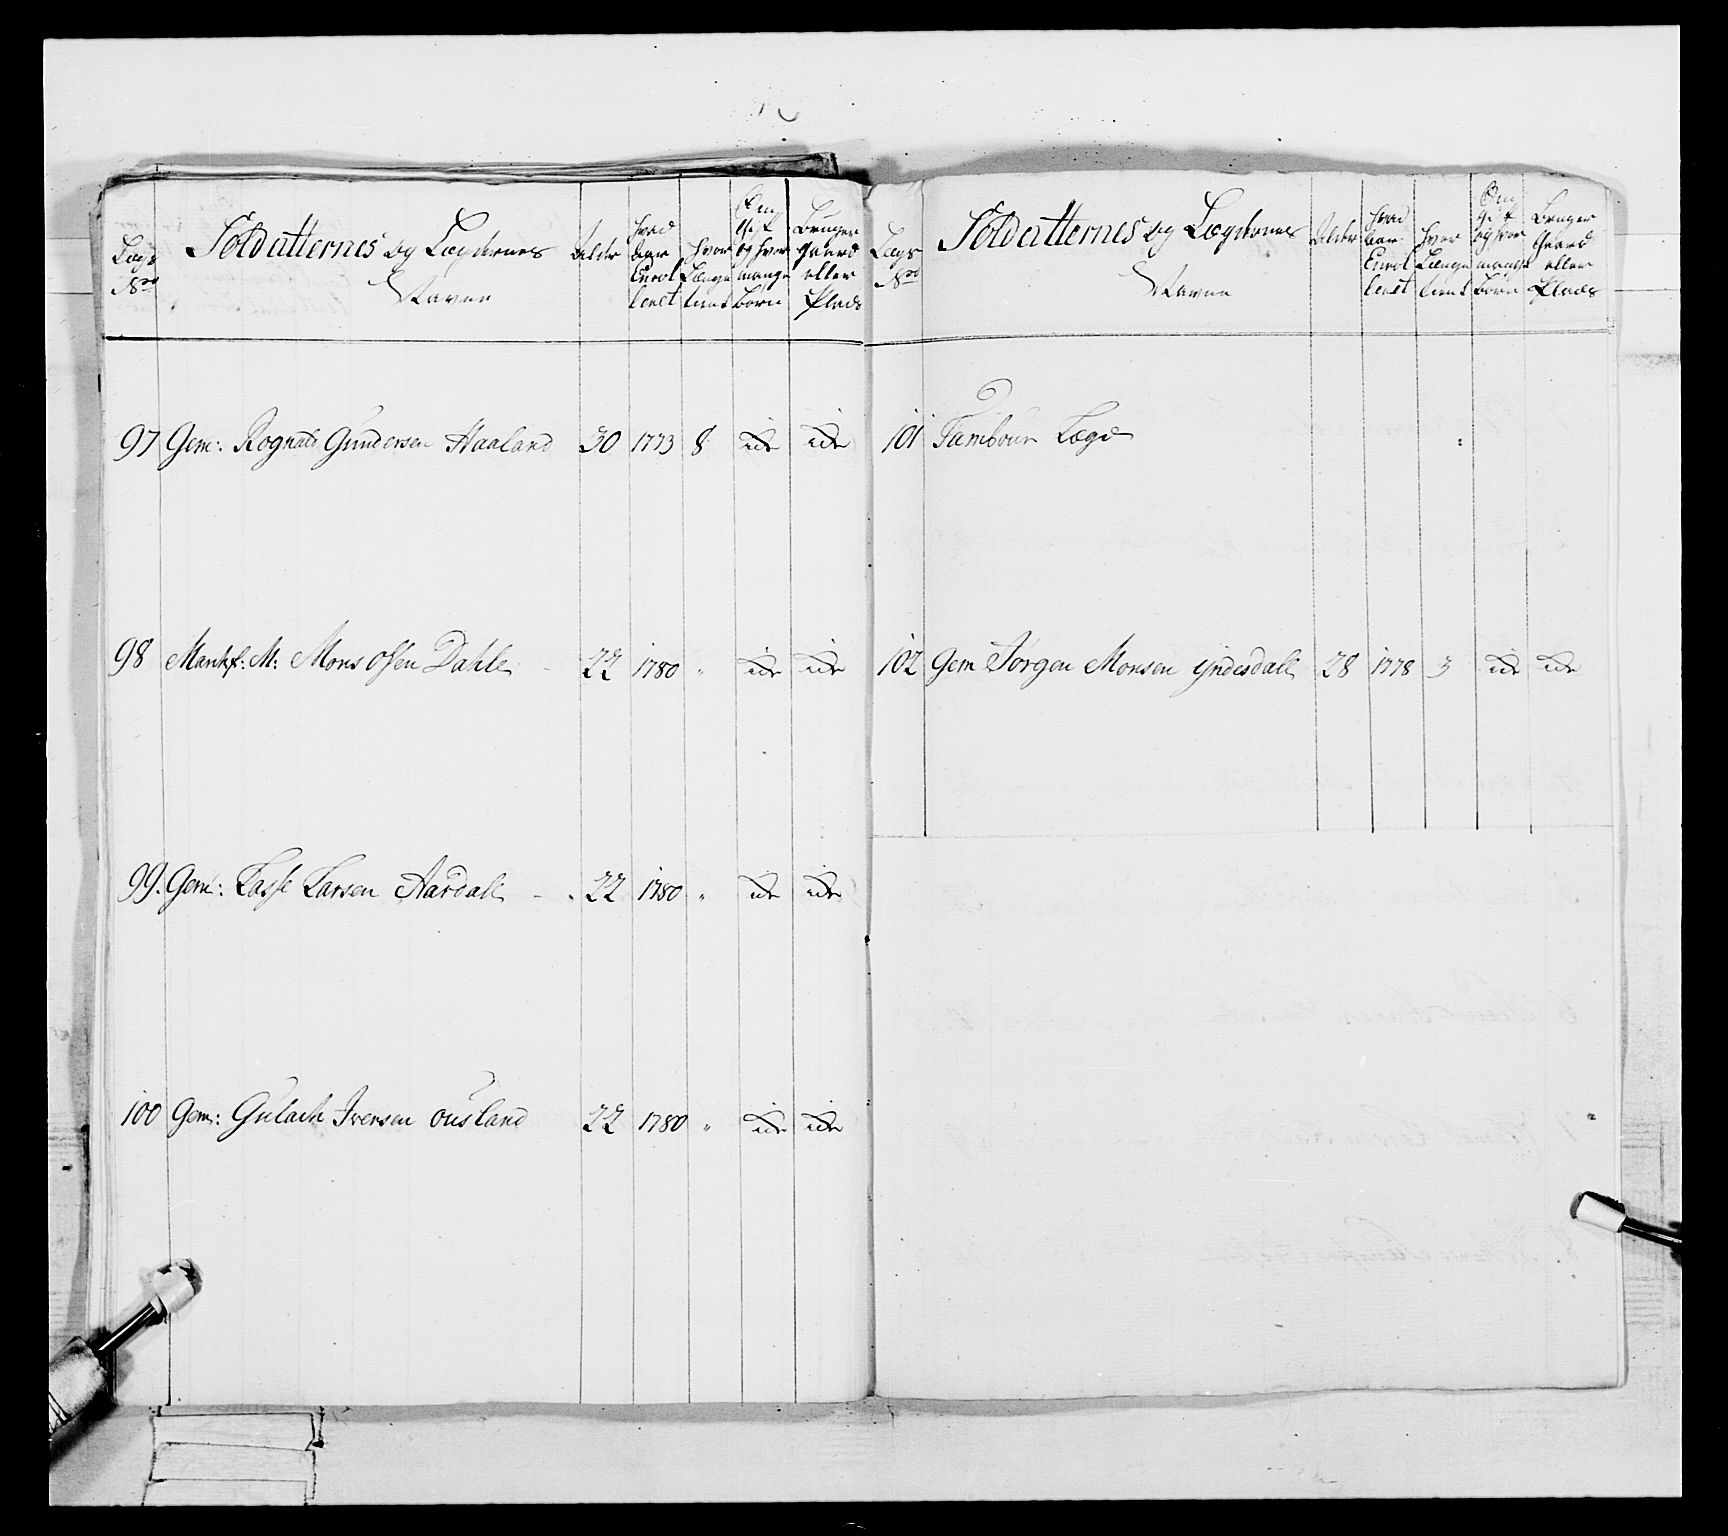 Lægs No
Soldatternes og Lægdernes
Navne
Alder
hvad
Aar
Enrol
leret
hvor
Længe
tient
Om
gift
og hvor
mange
børn
Bruger
Gaard
eller
Plads
97 Gem: Rognald Gundersen Haaland 30 1773 8 ide ide
98 Mons Olsen Dahle 22 1780 " ide ide
99. Gem: Lasse Larsen Aardall 22 1780 " ide ide
100 Gem: Gulach Iversen Ousland 22 1780 " ide ide
Lægs No
Soldatternes og Lægdernes
Navne
Alder
hvad
Aar
Enrol
leret
hvor
Længe
tient
Om
gift
og hvor
mange
børn
Bruger
Gaard
eller
Plads
101 Tambour Lægd
102 Gem Jørgen Monsen Yndesdall 28 1778 3 ide ide